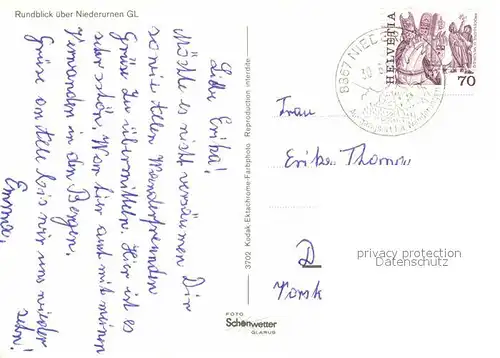 Rundblick über Niederurnen GL
Liebe Erika!
Möchte es nicht versäumen Dir
sowie allen Wanderfreunden
Grüße zu übermitteln. Hier ist es
sehr schön. War hier auch mit meinen
Verwandten in den Bergen.
Grüße an alle bis wir uns wieder
sehn!
Emma.
3702 Kodak-Ektachrome-Farbphoto Reproduction interdite
FOTO
Schönwetter
GLARUS
8867 NIED
HELVETIA
70
Frau
Erika
D
privacy protection
Datenschutz